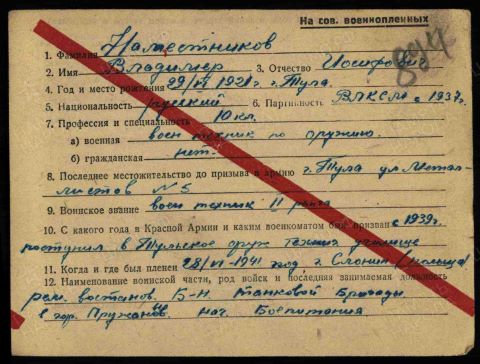 На сов. военнопленных
1. Фамилия Наместников
2. Имя Владимир 3. Отчество Иосифович
4. Год и место рождения 22/VI 1921 г. г. Тула.
5. Национальность русский 6. Партийность ВЛКСМ с 1937 г.
7. Профессия и специальность 10 кл.
а) военная воен техник по оружию.
б) гражданская нет.
8. Последнее местожительство до призыва в армию г. Тула ул Метал-
листов № 5
9. Воинское звание воен техник II ранга
10. С какого года в Красной Армии и каким военкоматом был призван с 1939 г.
поступил в Тульское оруж техник училище
11. Когда и где был пленен 28/VI 1941 год г. Слоним (польша)
12. Наименование воинской части, род войск и последняя занимаемая должность
рем. востанов. Б-н. танковой Бригады
в гор. Пружаны нач. Боепитания.